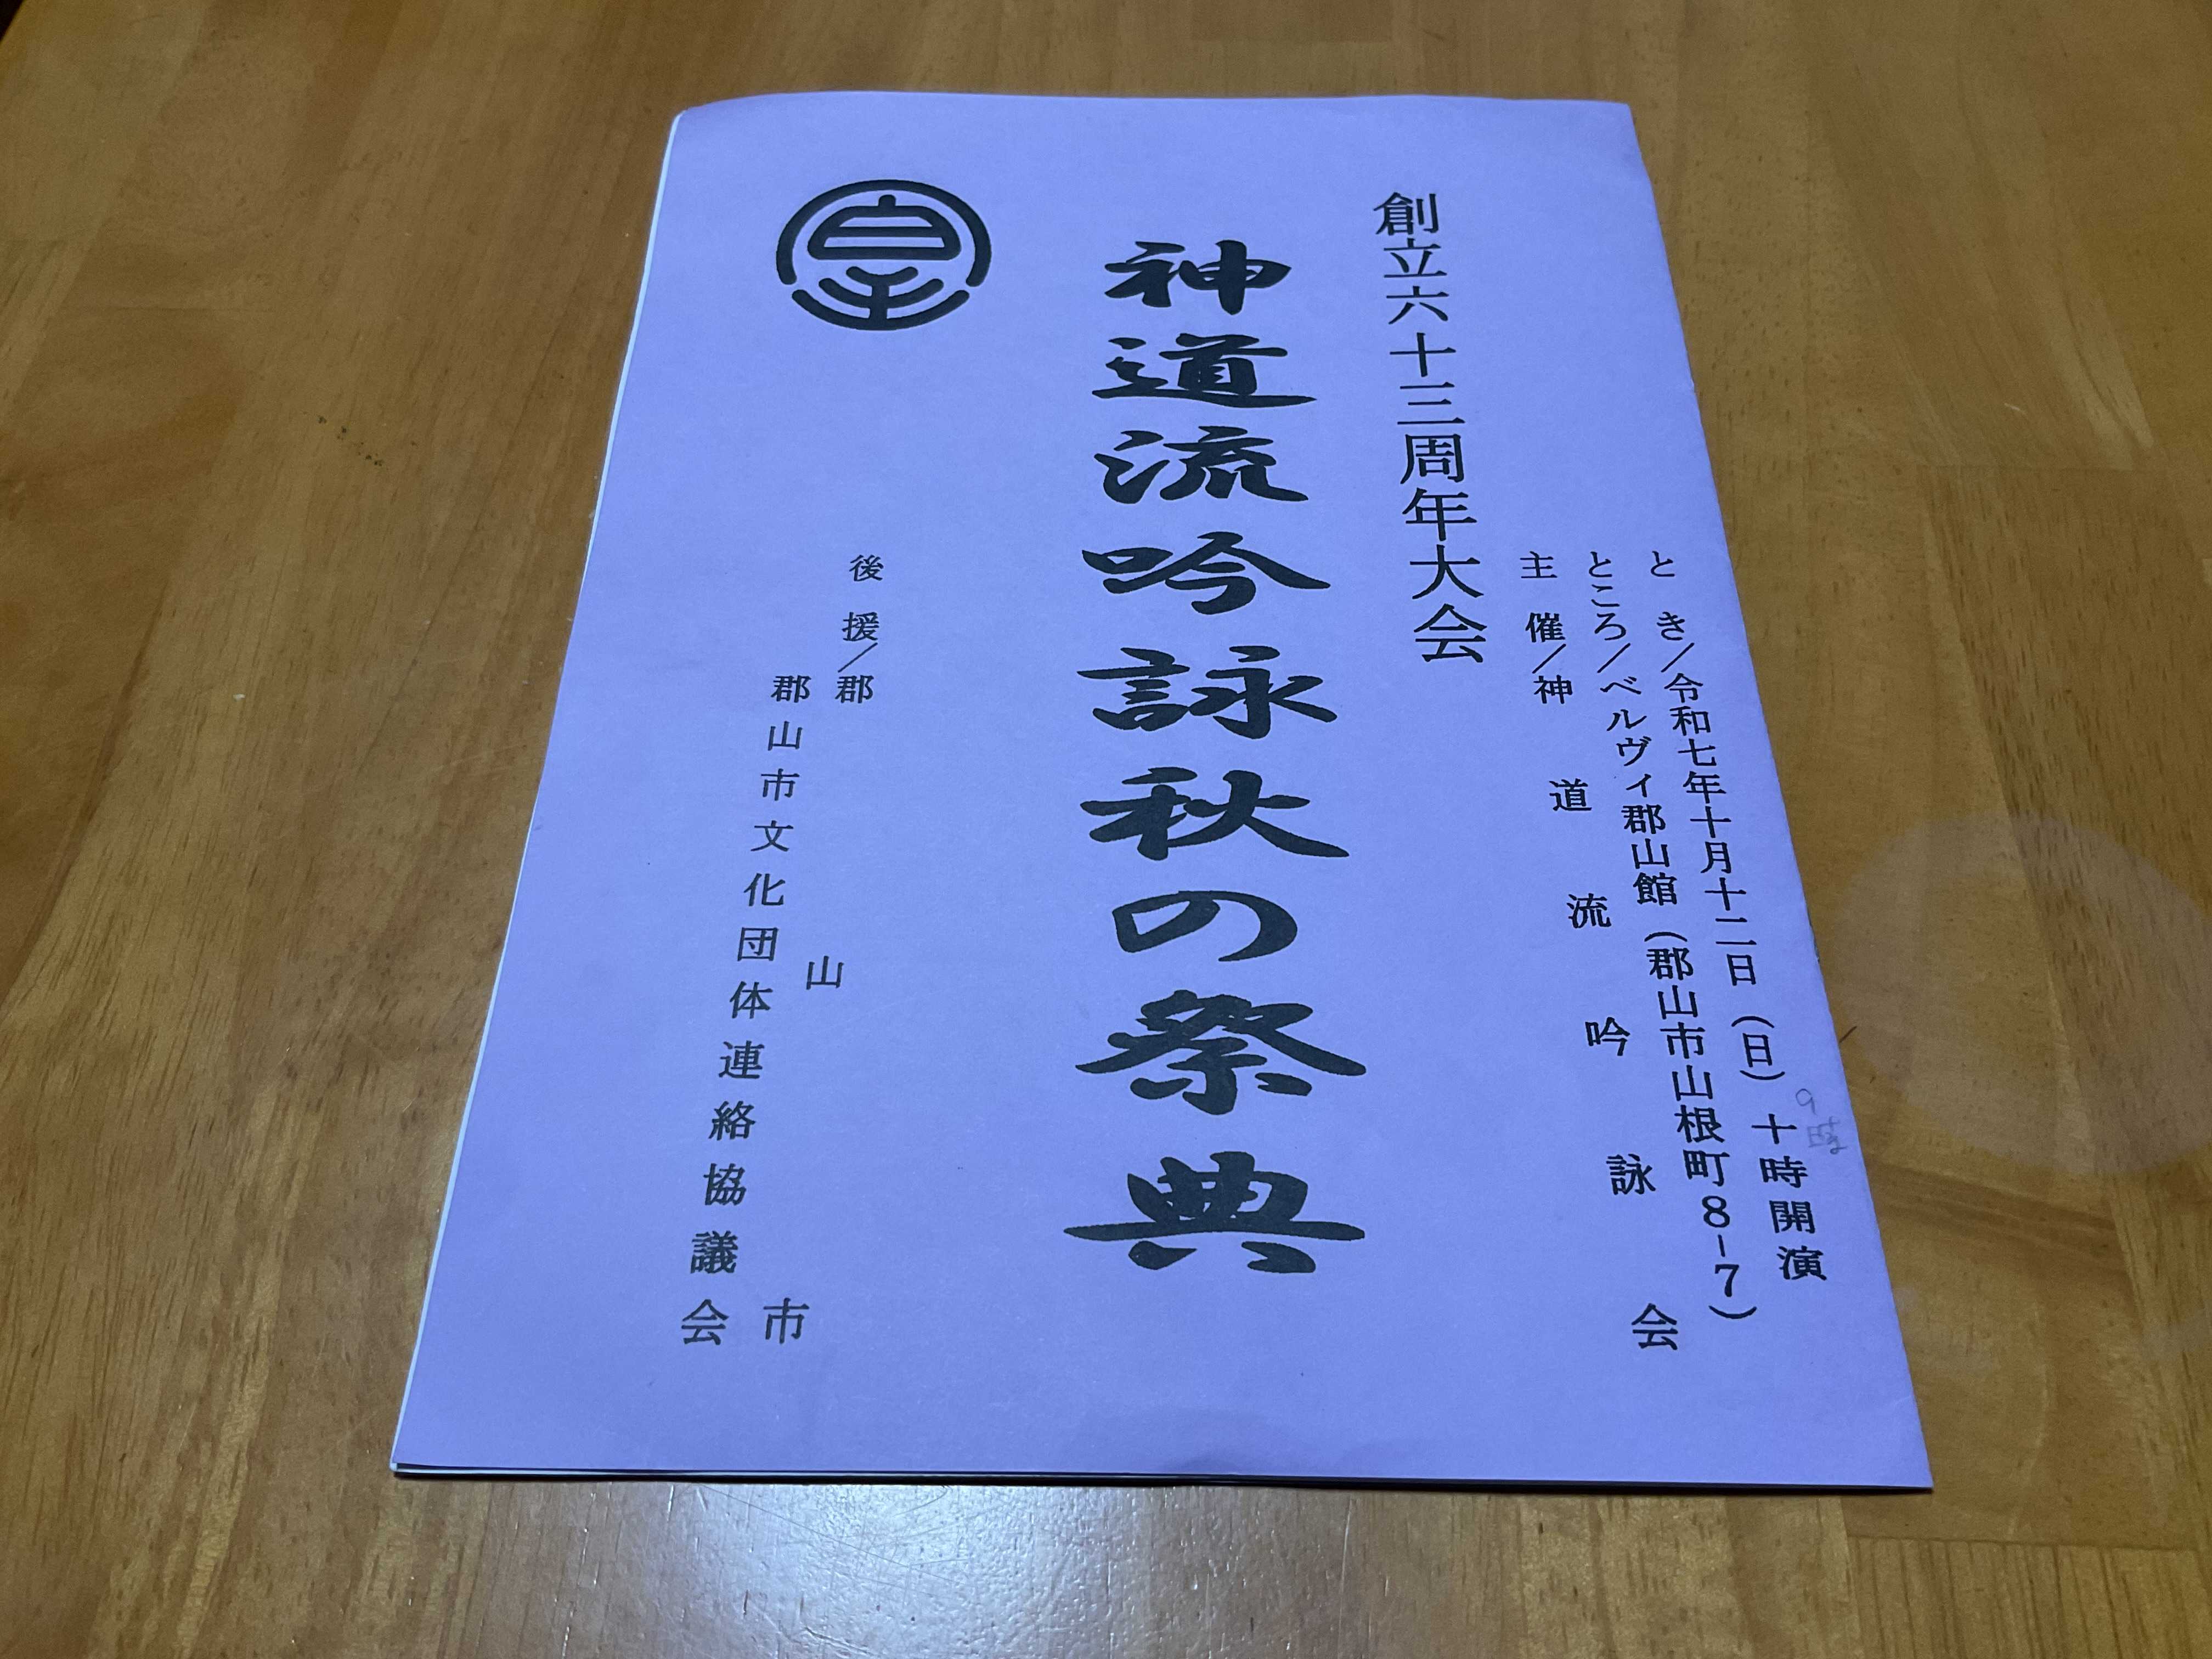 とき/令和七年十月十二日(日)十時開演
9時
ところ/ベルヴィ郡山館(郡山市山根町8-7)
主催/神道流吟詠会
創立六十三周年大会
神道流吟詠秋の祭典
後援/郡山市
郡山市文化団体連絡協議会